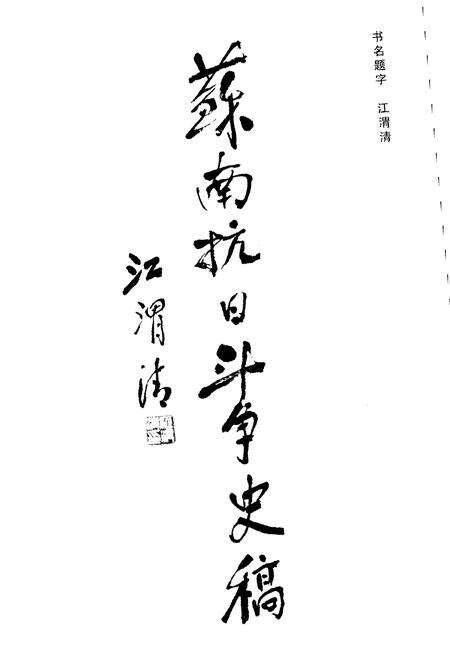 书名题字 江渭清
蘇南抗日斗争史稿
江渭清